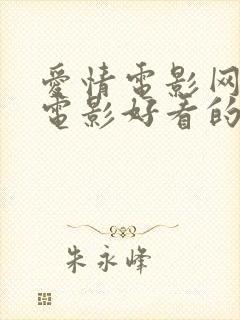 愛情電影网
電影好看的
朱永峰